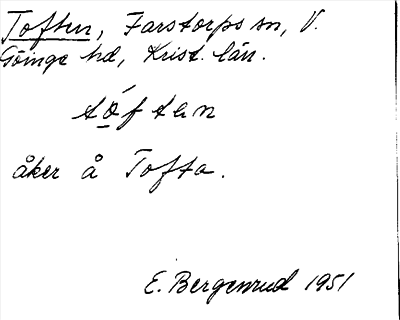 Toften, Farstorps sn, V.
Göinge hd, Krist. län.
tóftan
åker å Tofta.
E. Bergenrud 1951